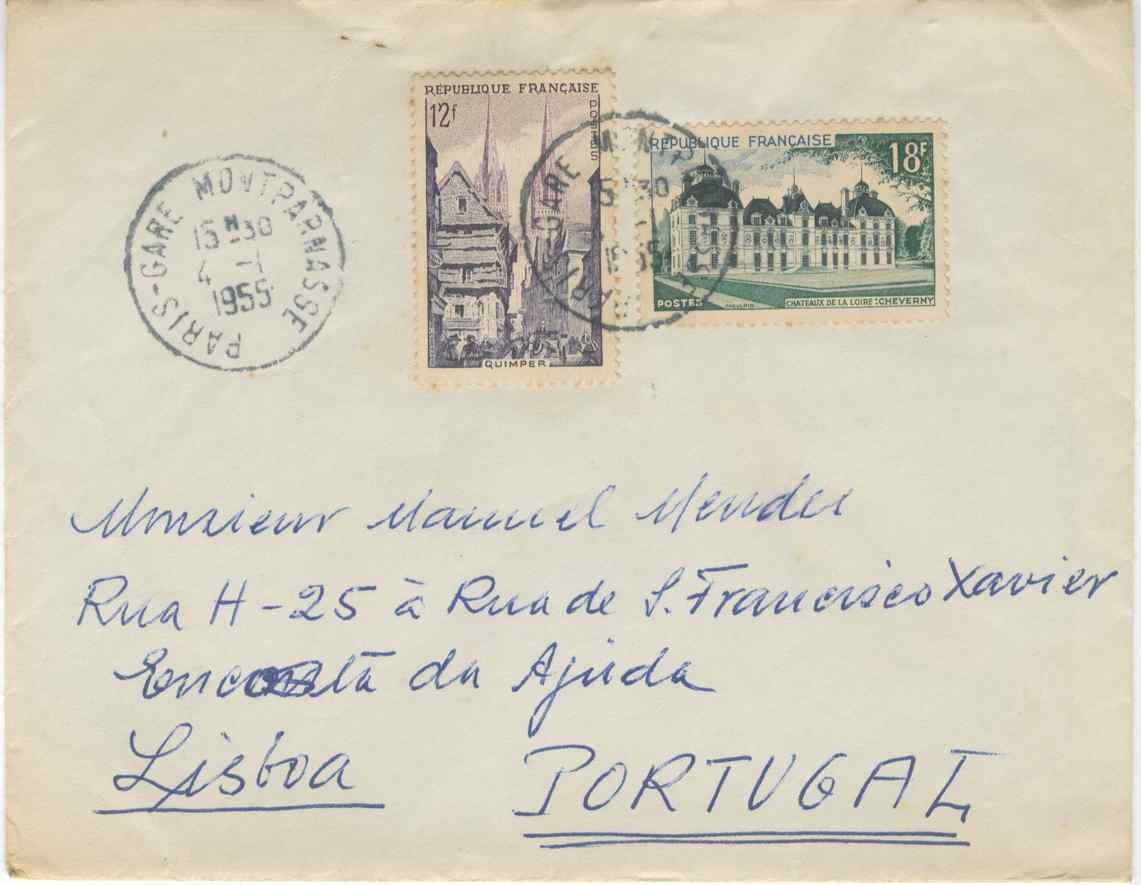 PARIS-GARE MONTPARNASSE
15H30
4 -1
1955
RÉPUBLIQUE FRANÇAISE
12F
POSTES
QUIMPER
PARIS-GARE MONTPARNASSE
15H30
1955
RÉPUBLIQUE FRANÇAISE
18F
POSTES
CHATEAUX DE LA LOIRE : CHEVERNY
Monsieur Manuel Mendes
Rua H-25 à Rua de S. Francisco Xavier
Encosta da Ajuda
Lisboa PORTUGAL